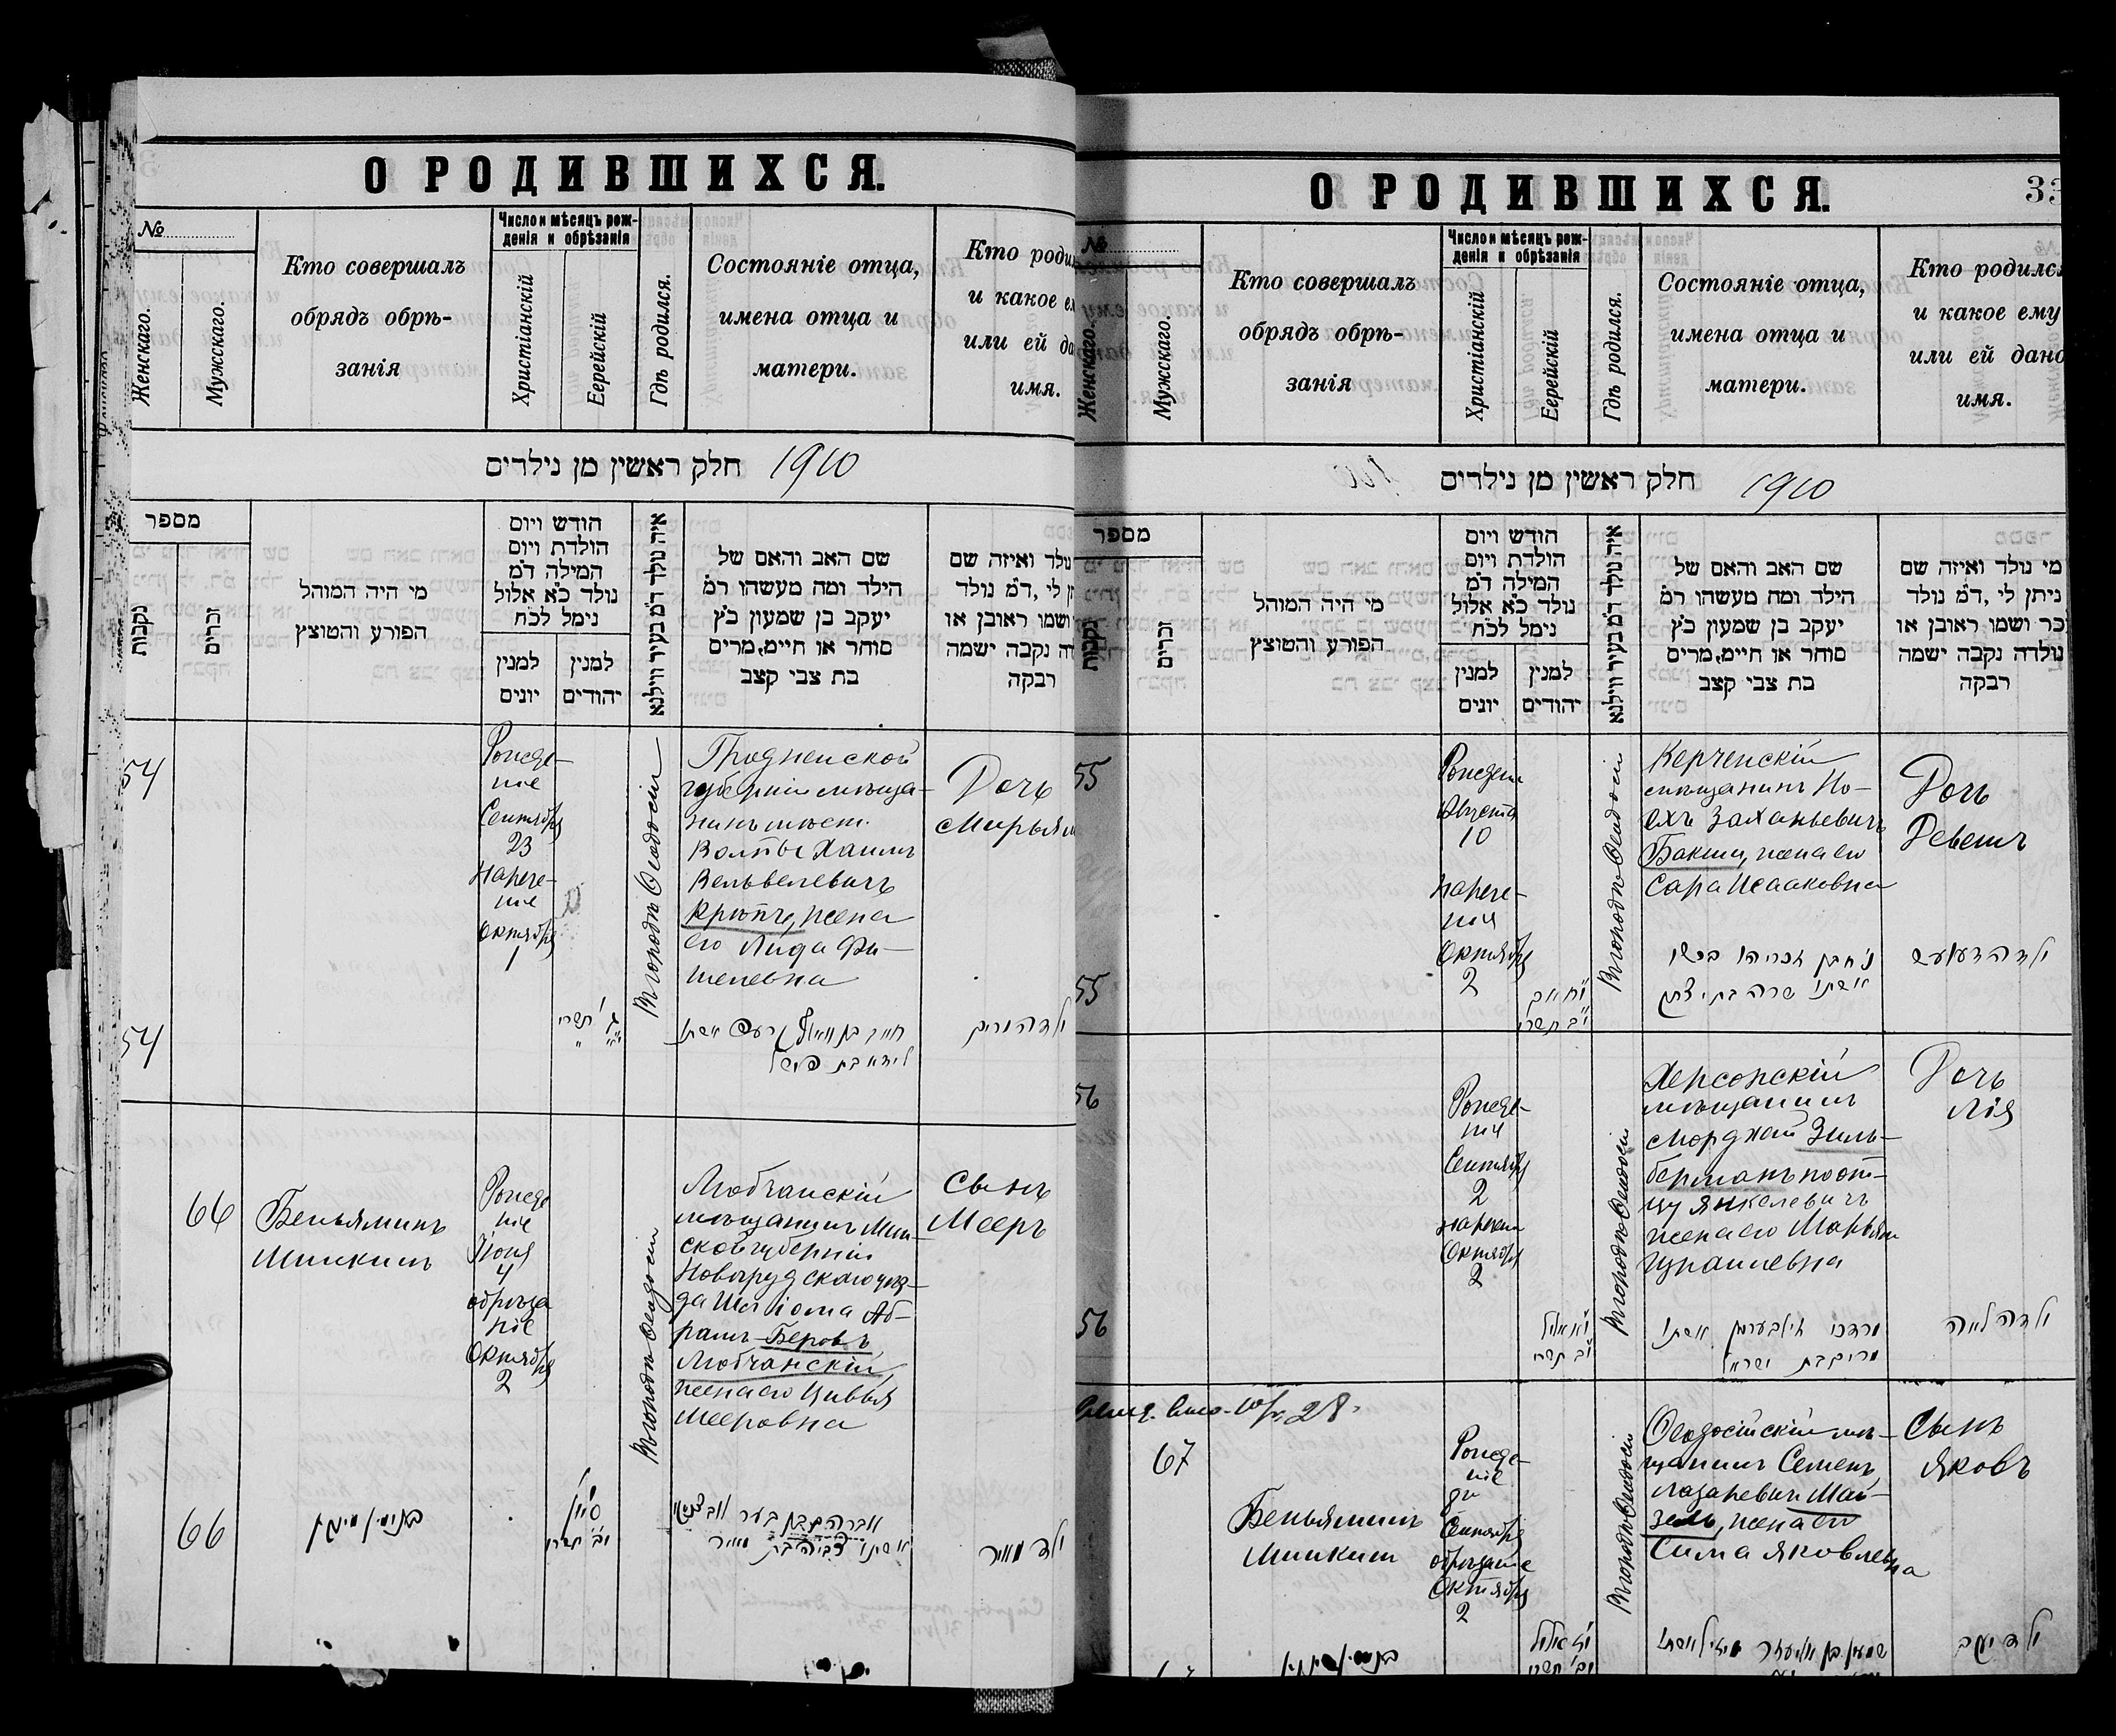 О РОДИВШИХСЯ.
№
Женскаго.
Мужскаго.
Кто совершалъ
обрядъ обрѣ-
занія
Число и мѣсяцъ рож-
денія и обрѣзанія
Христіанскій
Еерейскій
Гдѣ родился.
Состояніе отца,
имена отца и
матери.
Кто роди
и какое е
или ей да
имя.
חלק ראשין מן נילדים 1910
מספר
נקבות
זכרים
מי היה המוהל
הפורע והטוצץ
חודש ויום
הולדת ויום
המילה ד״מ
נולד כ״א אלול
נימל לכ״ח
למנין
יונים
למנין
יהודים
איה נולד ד״מ בעיר ווילנא
שם האב והאם של
הילד ומה מעשהו ר״מ
יעקב בן שמעון כ״ץ
סוחר או חיים, מרים
בת צבי קצב
נולד ואיזה שם
ן לי, ד״מ נולד
ושמו ראובן או
דה נקבה ישמה
רבקה
54
Рожде-
ніе
Сентября
23
Нарече-
ніе
Октября
1
Въ городѣ Ѳеодосіи
Гродненской
губерніи мѣща-
нинъ мѣст.
Волпы Хаимъ
Вельвелевичъ
жена
его Лида Фи-
шелевна
Дочь
Мирьямъ
54
ילדה מרים
66
Беньяминъ
Минкинъ
Рожде
ніе
Іюня
4
обрѣза
ніе
Октября
2
Въ городѣ Ѳеодосіи
Любчанскій
мѣщанинъ Мин-
ской губерніи
Новогрудскаго уѣз-
да Шліома Аб-
рамъ-Беровъ
Любчанскій
жена его Цивья
Мееровна
Сынъ
Мееръ
66
בנימין מינקין
אשתו צביה בת מאיר
ילד מאיר
О РОДИВШИХСЯ.
33
№
Женскаго.
Мужскаго.
Кто совершалъ
обрядъ обрѣ-
занія
Число и мѣсяцъ рож-
денія и обрѣзанія
Христіанскій
Еерейскій
Гдѣ родился.
Состояніе отца,
имена отца и
матери.
Кто родилс
и какое ему
или ей дано
имя.
חלק ראשין מן נילדים 1910
מספר
נקבות
זכרים
מי היה המוהל
הפורע והטוצץ
חודש ויום
הולדת ויום
המילה ד״מ
נולד כ״א אלול
נימל לכ״ח
למנין
יונים
למנין
יהודים
איה נולד ד״מ בעיר ווילנא
שם האב והאם של
הילד ומה מעשהו ר״מ
יעקב בן שמעון כ״ץ
סוחר או חיים, מרים
בת צבי קצב
מי נולד ואיזה שם
ניתן לי, ד״מ נולד
כר ושמו ראובן או
נולדה נקבה ישמה
רבקה
55
Августа
10
Нарече-
нія
Октября
2
Въ городѣ Ѳеодосіи
Керченскій
мѣщанинъ Но-
ахъ Заханьевичъ
Бакши, жена его
Сара Исааковна
Дочь
55
אשתו שרה בת יצחק
56
Рожде-
ніе
Сентября
2
Октября
2
Въ городѣ Ѳеодосіи
Херсонскій
мѣщанинъ
Мордхай Зиль-
берманъ по от-
цу Янкелевичъ
жена его Марьям
Израилевна
Дочь
Лія
56
מרדכי זילבערמן אשתו
מרים בת ישראל
ילדה לאה
28
67
Беньяминъ
Минкинъ
Рожде-
ніе
Сентября
обрѣзаніе
Октября
2
Въ городѣ Ѳеодосіи
Ѳеодосійскій мѣ-
щанинъ Семенъ
Лазаревич Май-
зель, жена его
Сима Яковлевна
Сынъ
Яковъ
בנימין מינקין
ילד יעקב